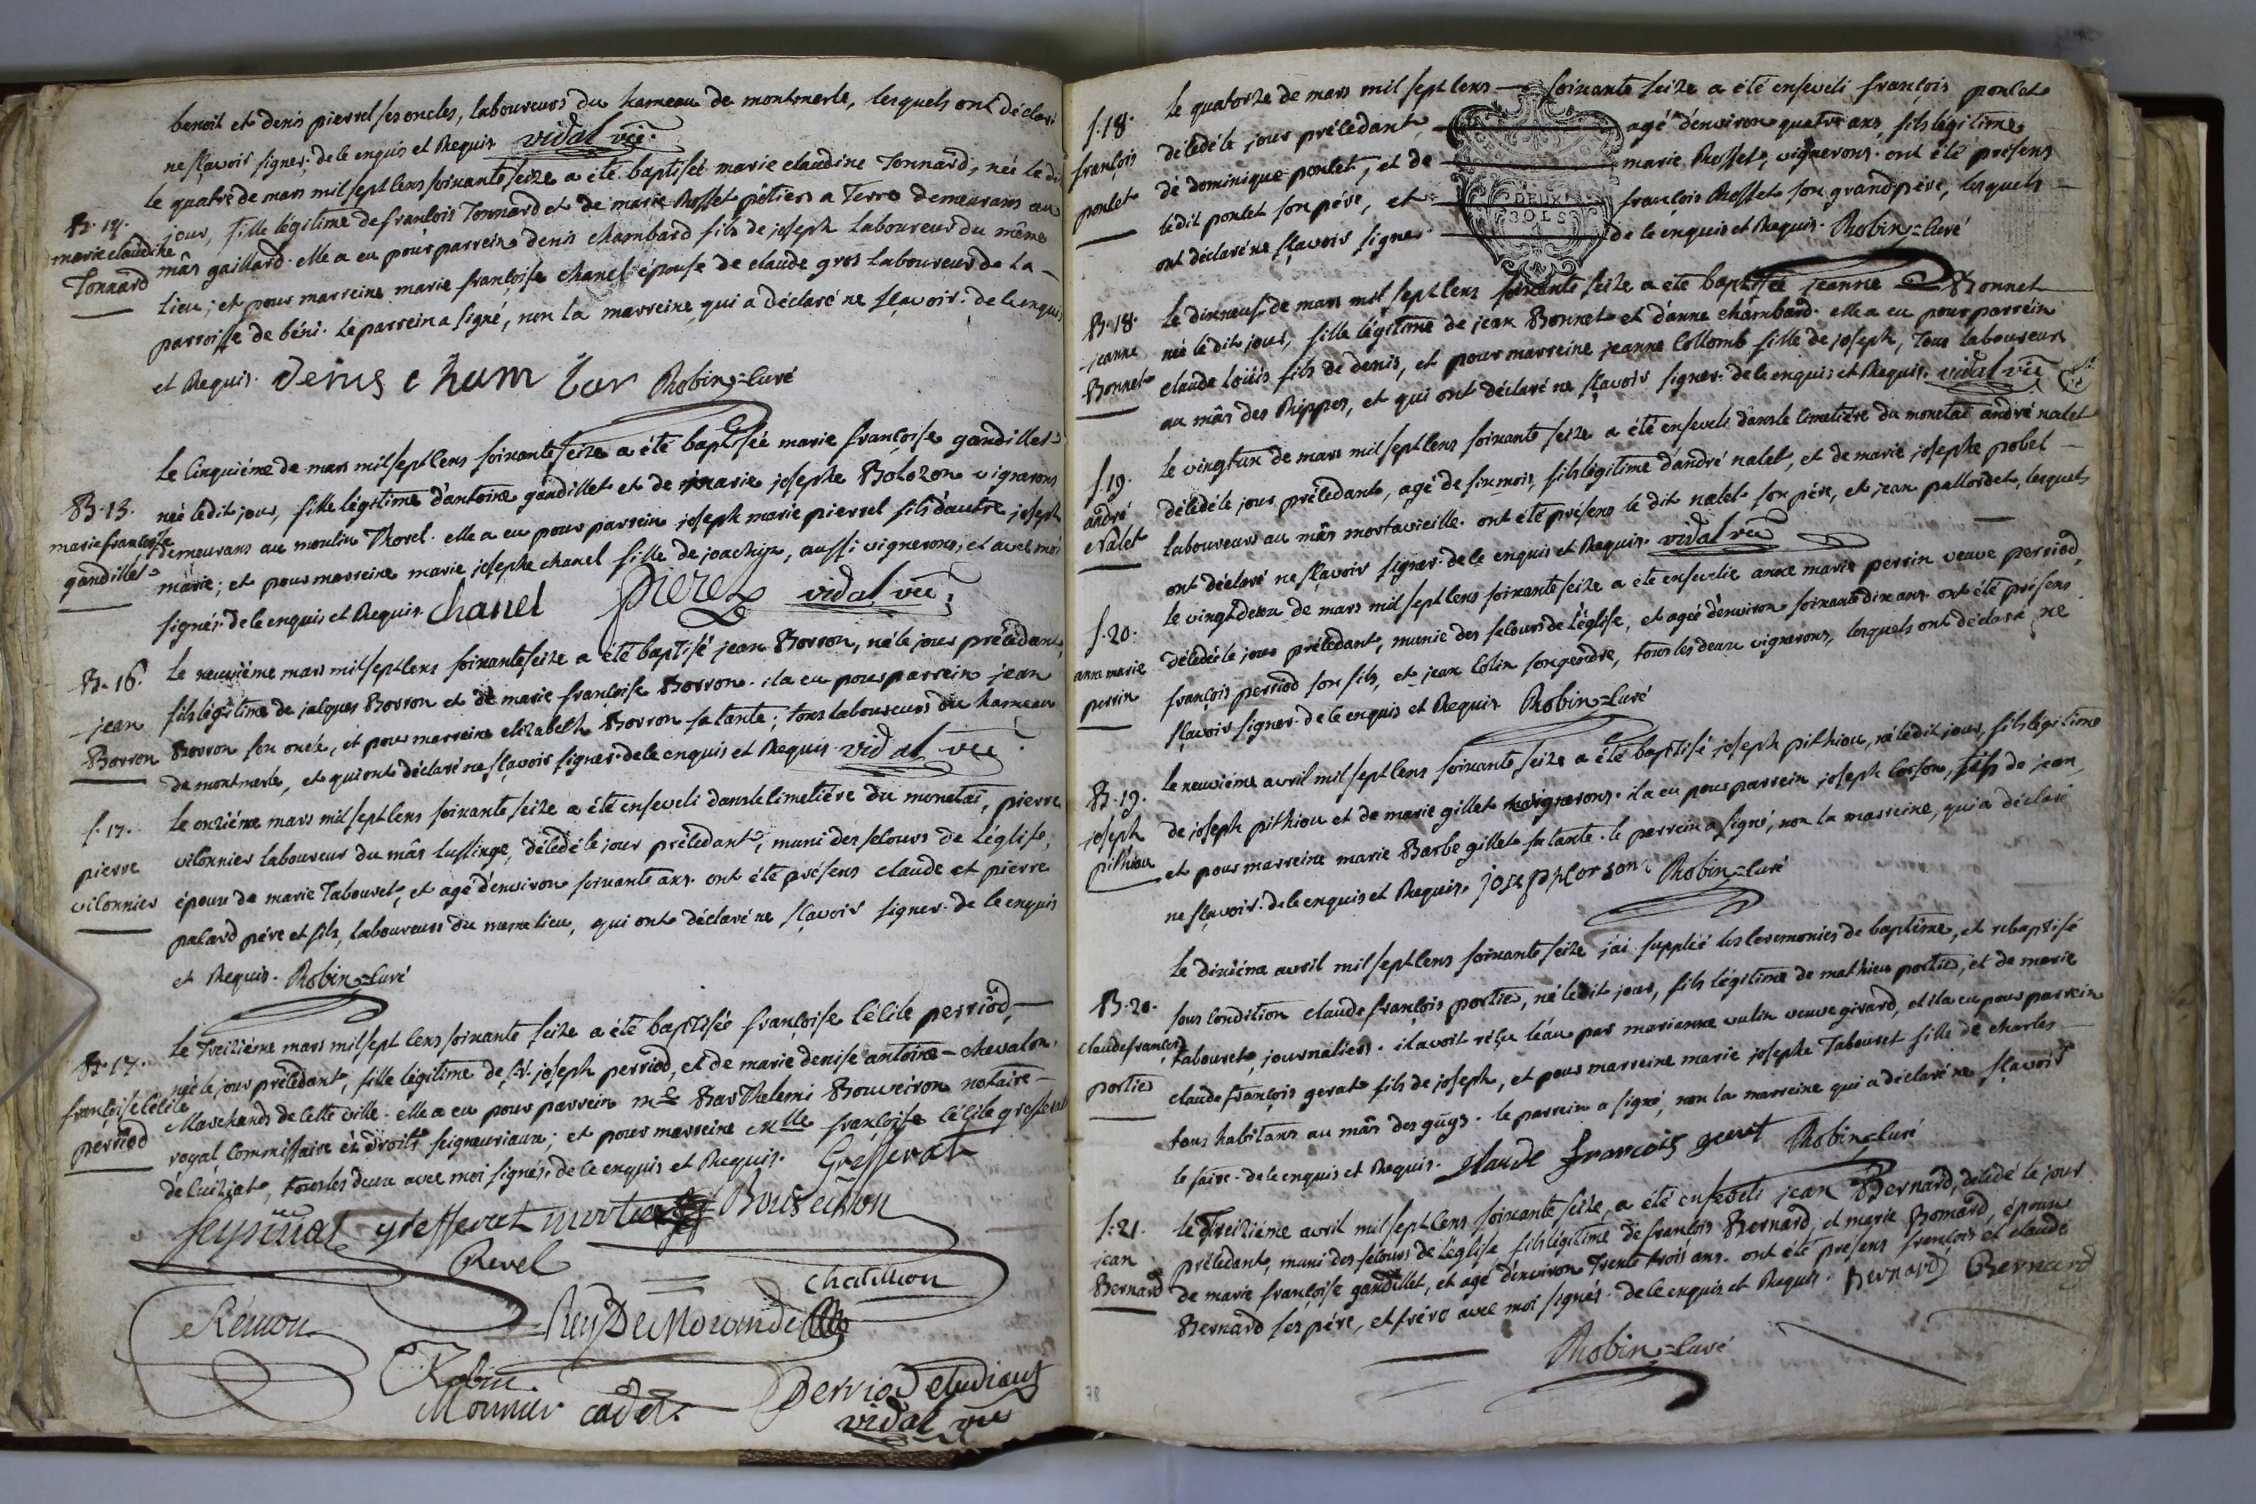 benoit et denis pierrel ses oncles, laboureurs du hameau de montmerle, lesquels ont déclaré
ne sçavoir signer. de ce enquis et Requis. vidal vic.
B. 14.
marie claudine
Tonnard
le quatre de mars mil sept cens soixante seize a été baptisée marie claudine Tonnard, née le dit
jour, fille légitime de francois Tonnard et de marie Rosset demeurans au
mâs gaillard. elle a eu pour parrein denis chambard fils de joseph laboureur du même
lieu; et pour marreine marie francoise chanel épouse de claude gros laboureur de la
parroisse de béni. le parrein a signé, non la marreine, qui a déclaré ne sçavoir. de ce enquis
et Requis. denis chambar Robin=curé
B. 15.
marie francoise
gandillet
le cinquiéme de mars mil sept cens soixante seize a été baptisée marie françoise gandillet
née le dit jour, fille légitime d'antoine gandillet et de marie josephe Bolozon vignerons
demeurans au moulin Thorel. elle a eu pour parrein joseph marie pierrel fils d'autre joseph
marie; et pour marreine marie josephe chanel fille de joachin, aussi vignerons, et avec moi
signés. de ce enquis et Requis. Chanel pierel vidal vic.
B. 16.
jean
Borron
le neuviéme mars mil sept cens soixante seize a été baptisé jean Borron, né le jour précédant,
fils légitime de jacques Borron et de marie françoise Borron. il a eu pour parrein jean
Borron son oncle, et pour marreine elizabeth Borron sa tante; tous laboureurs du hameau
de montmerle, et qui ont déclaré ne sçavoir signer. de ce enquis et Requis. vidal vic
S. 17.
pierre
vilonnier
le onziéme mars mil sept cens soixante seize a été enseveli dans le cimetiére du monetai, pierre
vilonnier laboureur du mâs lussinge, décédé le jour précédant, muni des secours de l'église,
époux de marie Tabouret, et agé d'environ soixante ans. ont été présens claude et pierre
palard pére et fils, laboureurs du meme lieu, qui ont déclaré ne sçavoir signer. de ce enquis
et Requis. Robin=curé
B. 17.
françoise cécile
perriod
le Treiziéme mars mil sept cens soixante seize a été baptisée françoise cécile perriod,
née le jour précédant, fille légitime de Sr. joseph perriod, et de marie denise antoine-chevalon,
Marchands de cette ville. elle a eu pour parrein me Barthelemi Bouveiron notaire
royal commissaire ez droits seigneuriaux; et pour marreine mlle françoise cécile gresserat
de cuiziat, tous les deux avec moi signés. de ce enquis et Requis. Gresserat
gresserat Bouveiron
Revel
chatillon
Rémon
Rey De Morande
Robin
Monnier cadet
perriod etudiant
vidal vic
S. 18.
françois
poncet
le quatorze de mars mil sept cens soixante seize a été enseveli françois poncet
décédé le jour précédant, agé d'environ quatre ans, fils légitime
de dominique poncet, et de marie Rosset, vignerons. ont été présens
le dit poncet son pére, et françois Rosset son grand pére, lesquels
ont déclaré ne sçavoir signer de ce enquis et Requis. Robin=curé
DEUX
SOLS
B. 18.
jeanne
Bonnet
le dixneuf de mars mil sept cens soixante seize a été baptisée jeanne Bonnet
née le dit jour, fille légitime de jean Bonnet et d'anne chambard. elle a eu pour parrein
claude loüis fils de denis, et pour marreine jeanne Collomb fille de joseph, tous laboureurs
au mâs des Rippes, et qui ont déclaré ne sçavoir signer. de ce enquis et Requis. vidal vic
S. 19.
andré
Nalet
le vingtun de mars mil sept cens soixante seize a été enseveli dans le cimetiére du monetai andré nalet
décédé le jour précédant, agé de six mois, fils légitime d'andré nalet, et de marie josephe pobel
laboureurs au mâs mortavieille. ont été présens le dit nalet son pére, et jean pallordet, lesquels
ont déclaré ne sçavoir signer. de ce enquis et Requis. vidal vic
S. 20.
anne marie
perrin
le vingtdeux de mars mil sept cens soixante seize a été ensevelie anne marie perrin veuve perriod,
décédée le jour précédant, munie des secours de l'église, et agée d'environ soixante dix ans. ont été présens
françois perriod son fils, et jean Colin son gendre, tous les deux vignerons, lesquels ont déclaré ne
sçavoir signer. de ce enquis et Requis. Robin=curé
B. 19.
joseph
pithiou
le neuviéme avril mil sept cens soixante seize a été baptisé joseph pithiou, né le dit jour, fils légitime
de joseph pithiou et de marie gillet vignerons. il a eu pour parrein joseph corson, fils de jean,
et pour marreine marie Barbe gillet sa tante. le parrein a signé, non la marreine, qui a déclaré
ne sçavoir. de ce enquis et Requis. joseph corson Robin=curé
B. 20.
claude françois
portier
le dixiéme avril mil sept cens soixante seize j'ai suppléé les ceremonies de baptême, et rebaptisé
sous condition claude françois portier, né le dit jour, fils légitime de mathieu portier, et de marie
tabouret, journaliers. il avoit réçu l'eau par marianne vulin veuve girard, et il a eu pour parrein
claude françois gerat fils de joseph, et pour marreine marie josephe Tabouret fille de charles
tous habitans au mâs des guys. le parrein a signé, non la marreine qui a déclaré ne sçavoir
le faire. de ce enquis et Requis. claude francois gerat Robin=curé
S. 21.
jean
Bernard
le Treiziéme avril mil sept cens soixante seize, a été enseveli jean Bernard, décédé le jour
précédant, muni des secours de l'église fils légitime de françois Bernard, et marie Bomard, époux
de marie françoise gandillet, et agé d'environ Trente trois ans. ont été présens françois et claude
Bernard ses pére, et frére avec moi signés. de ce enquis et Requis. Bernard Bernard
Robin=curé
78